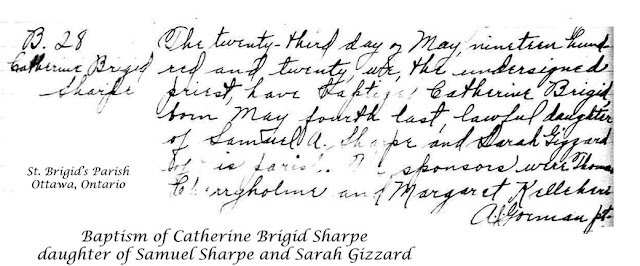 B. 28
Catherine Brigid
Sharpe
The twenty-third day of May, nineteen hund
red and twenty, we, the undersigned
priest, have baptized Catherine Brigid,
born May fourth last, lawful daughter
of Samuel A. Sharpe and Sarah Gizzard
of this parish. The sponsors were Thomas
and Margaret Kelleher.
A. Gorman pt.
St. Brigid's Parish
Ottawa, Ontario
Baptism of Catherine Brigid Sharpe
daughter of Samuel Sharpe and Sarah Gizzard